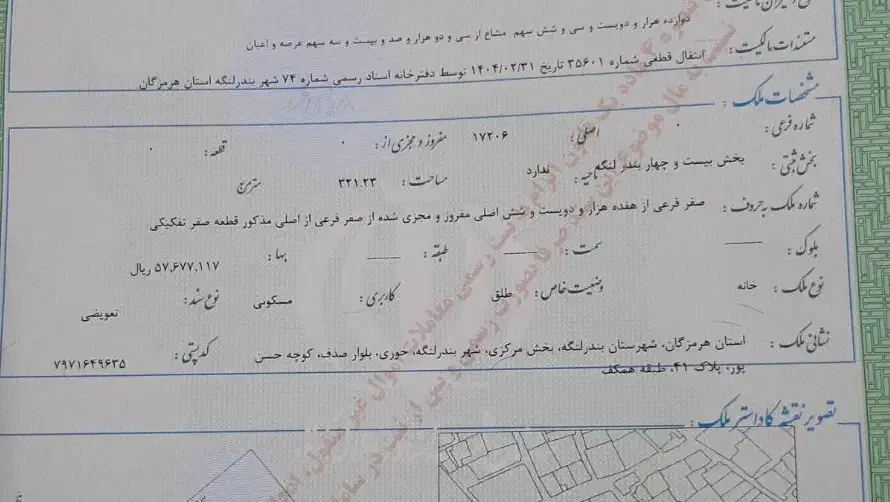 دوازده هزار و دویست و سی و شش سهم مشاع از سی و دو هزار و صد و بیست و سه سهم عرصه و اعیان
مستندات مالکیت : انتقال قطعی شماره ۳۵۶۰۱ تاریخ ۱۴۰۴/۰۲/۳۱ توسط دفترخانه اسناد رسمی شماره ۷۴ شهر بندرلنگه استان هرمزگان
مشخصات ملک :
شماره فرعی : ۰ اصلی : ۱۷۲۰۶ مفروز و مجزی از : ۰ قطعه : ۰
بخش ثبتی : بخش بیست و چهار بندر لنگه ناحیه : ندارد مساحت : ۳۲۱.۲۳ مترمربع
شماره ملک به حروف : صفر فرعی از هفده هزار و دویست و شش اصلی مفروز و مجزی شده از صفر فرعی از اصلی مذکور قطعه صفر تفکیکی
بلوک : ـــــ سمت : ـــــ طبقه : ـــــ بها : ۵۷,۶۷۷,۱۱۷ ریال
نوع ملک : خانه وضعیت خاص : طلق کاربری : مسکونی نوع سند : تعویضی
نشانی ملک : استان هرمزگان، شهرستان بندرلنگه، بخش مرکزی، شهر بندرلنگه، خوری، بلوار صدف، کوچه حسن
پور، پلاک ۴۱، طبقه همکف کدپستی : ۷۹۷۱۶۴۹۶۳۵
تصویر نقشه کاداستر ملک :